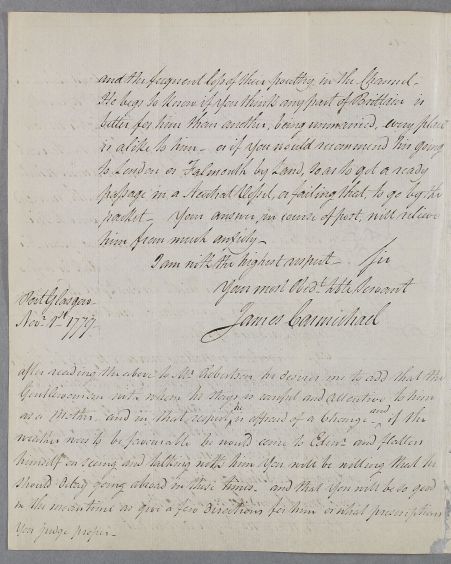 and the frequent loss of their poultry, in the Channel.
He begs to know if you think any part of Brittain is
better for him than another, being unmarried, every place
is alike to him – or if you would recommend his going
to London or Falmouth by Land, so as to get a ready
passage in a Neutral Vessel, or failing that, to go by the
packet – Your answer, in course of post, will relieve
him from much anxiety –
I am with the highest respect – Sir
Your most Obed.t hble Servant
James Carmichael
Port Glasgow
Nov.r 1779
after reading the above to Mr Robertson, he desires me to add that the
Gentlewoman where he stays is careful and attentive to him
as a Mother and in that respect, he is affraid of a Change – and, if the
weather was to be favourable he would come to Edinr and flatters
himself on seeing and talking with him You will be willing that he
should delay going abroad in these times – and that You will be so good
in the meantime as give a few directions for him or what prescriptions
You judge proper –